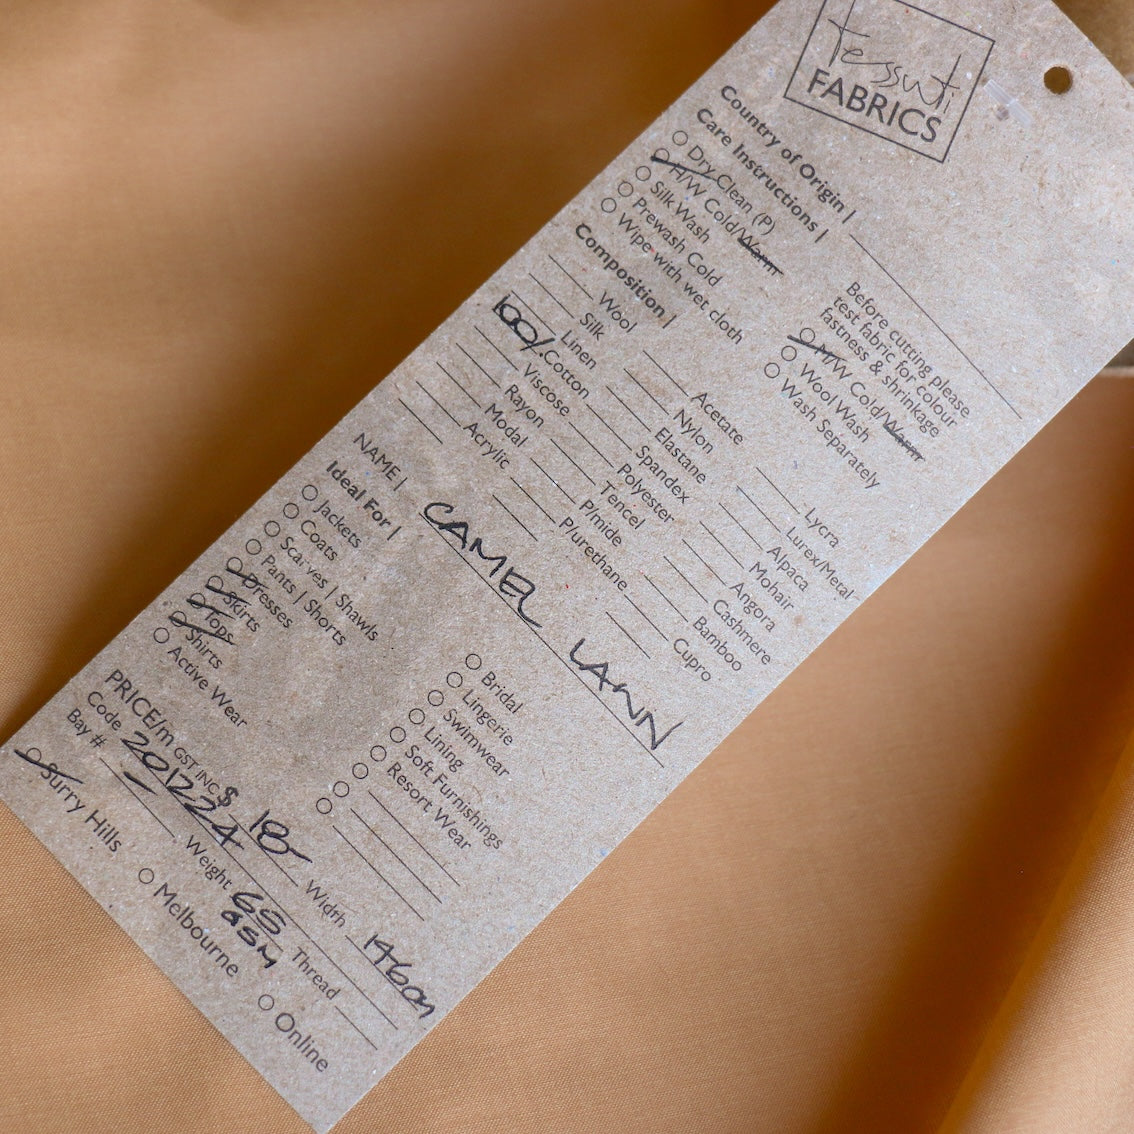 tessuti
FABRICS
Country of Origin |
Care Instructions |
Dry Clean (P)
H/W Cold/Warm
Silk Wash
Prewash Cold
Wipe with wet cloth
Before cutting please
test fabric for colour
fastness & shrinkage
M/W Cold/Warm
Wool Wash
Wash Separately
Composition |
Wool
Silk
Linen
100% Cotton
Viscose
Rayon
Modal
Acrylic
Acetate
Nylon
Elastane
Spandex
Polyester
Tencel
P/mide
P/urethane
Lycra
Lurex/Metal
Alpaca
Mohair
Angora
Cashmere
Bamboo
Cupro
NAME | CAMEL LAWN
Ideal For |
Jackets
Coats
Scarves | Shawls
Pants | Shorts
Dresses
Skirts
Tops
Shirts
Active Wear
Bridal
Lingerie
Swimwear
Lining
Soft Furnishings
Resort Wear
PRICE/m GST INC $ 18- Width 146cm
Code 2012224 Weight 65 gsm Thread
Bay #
Surry Hills Melbourne Online